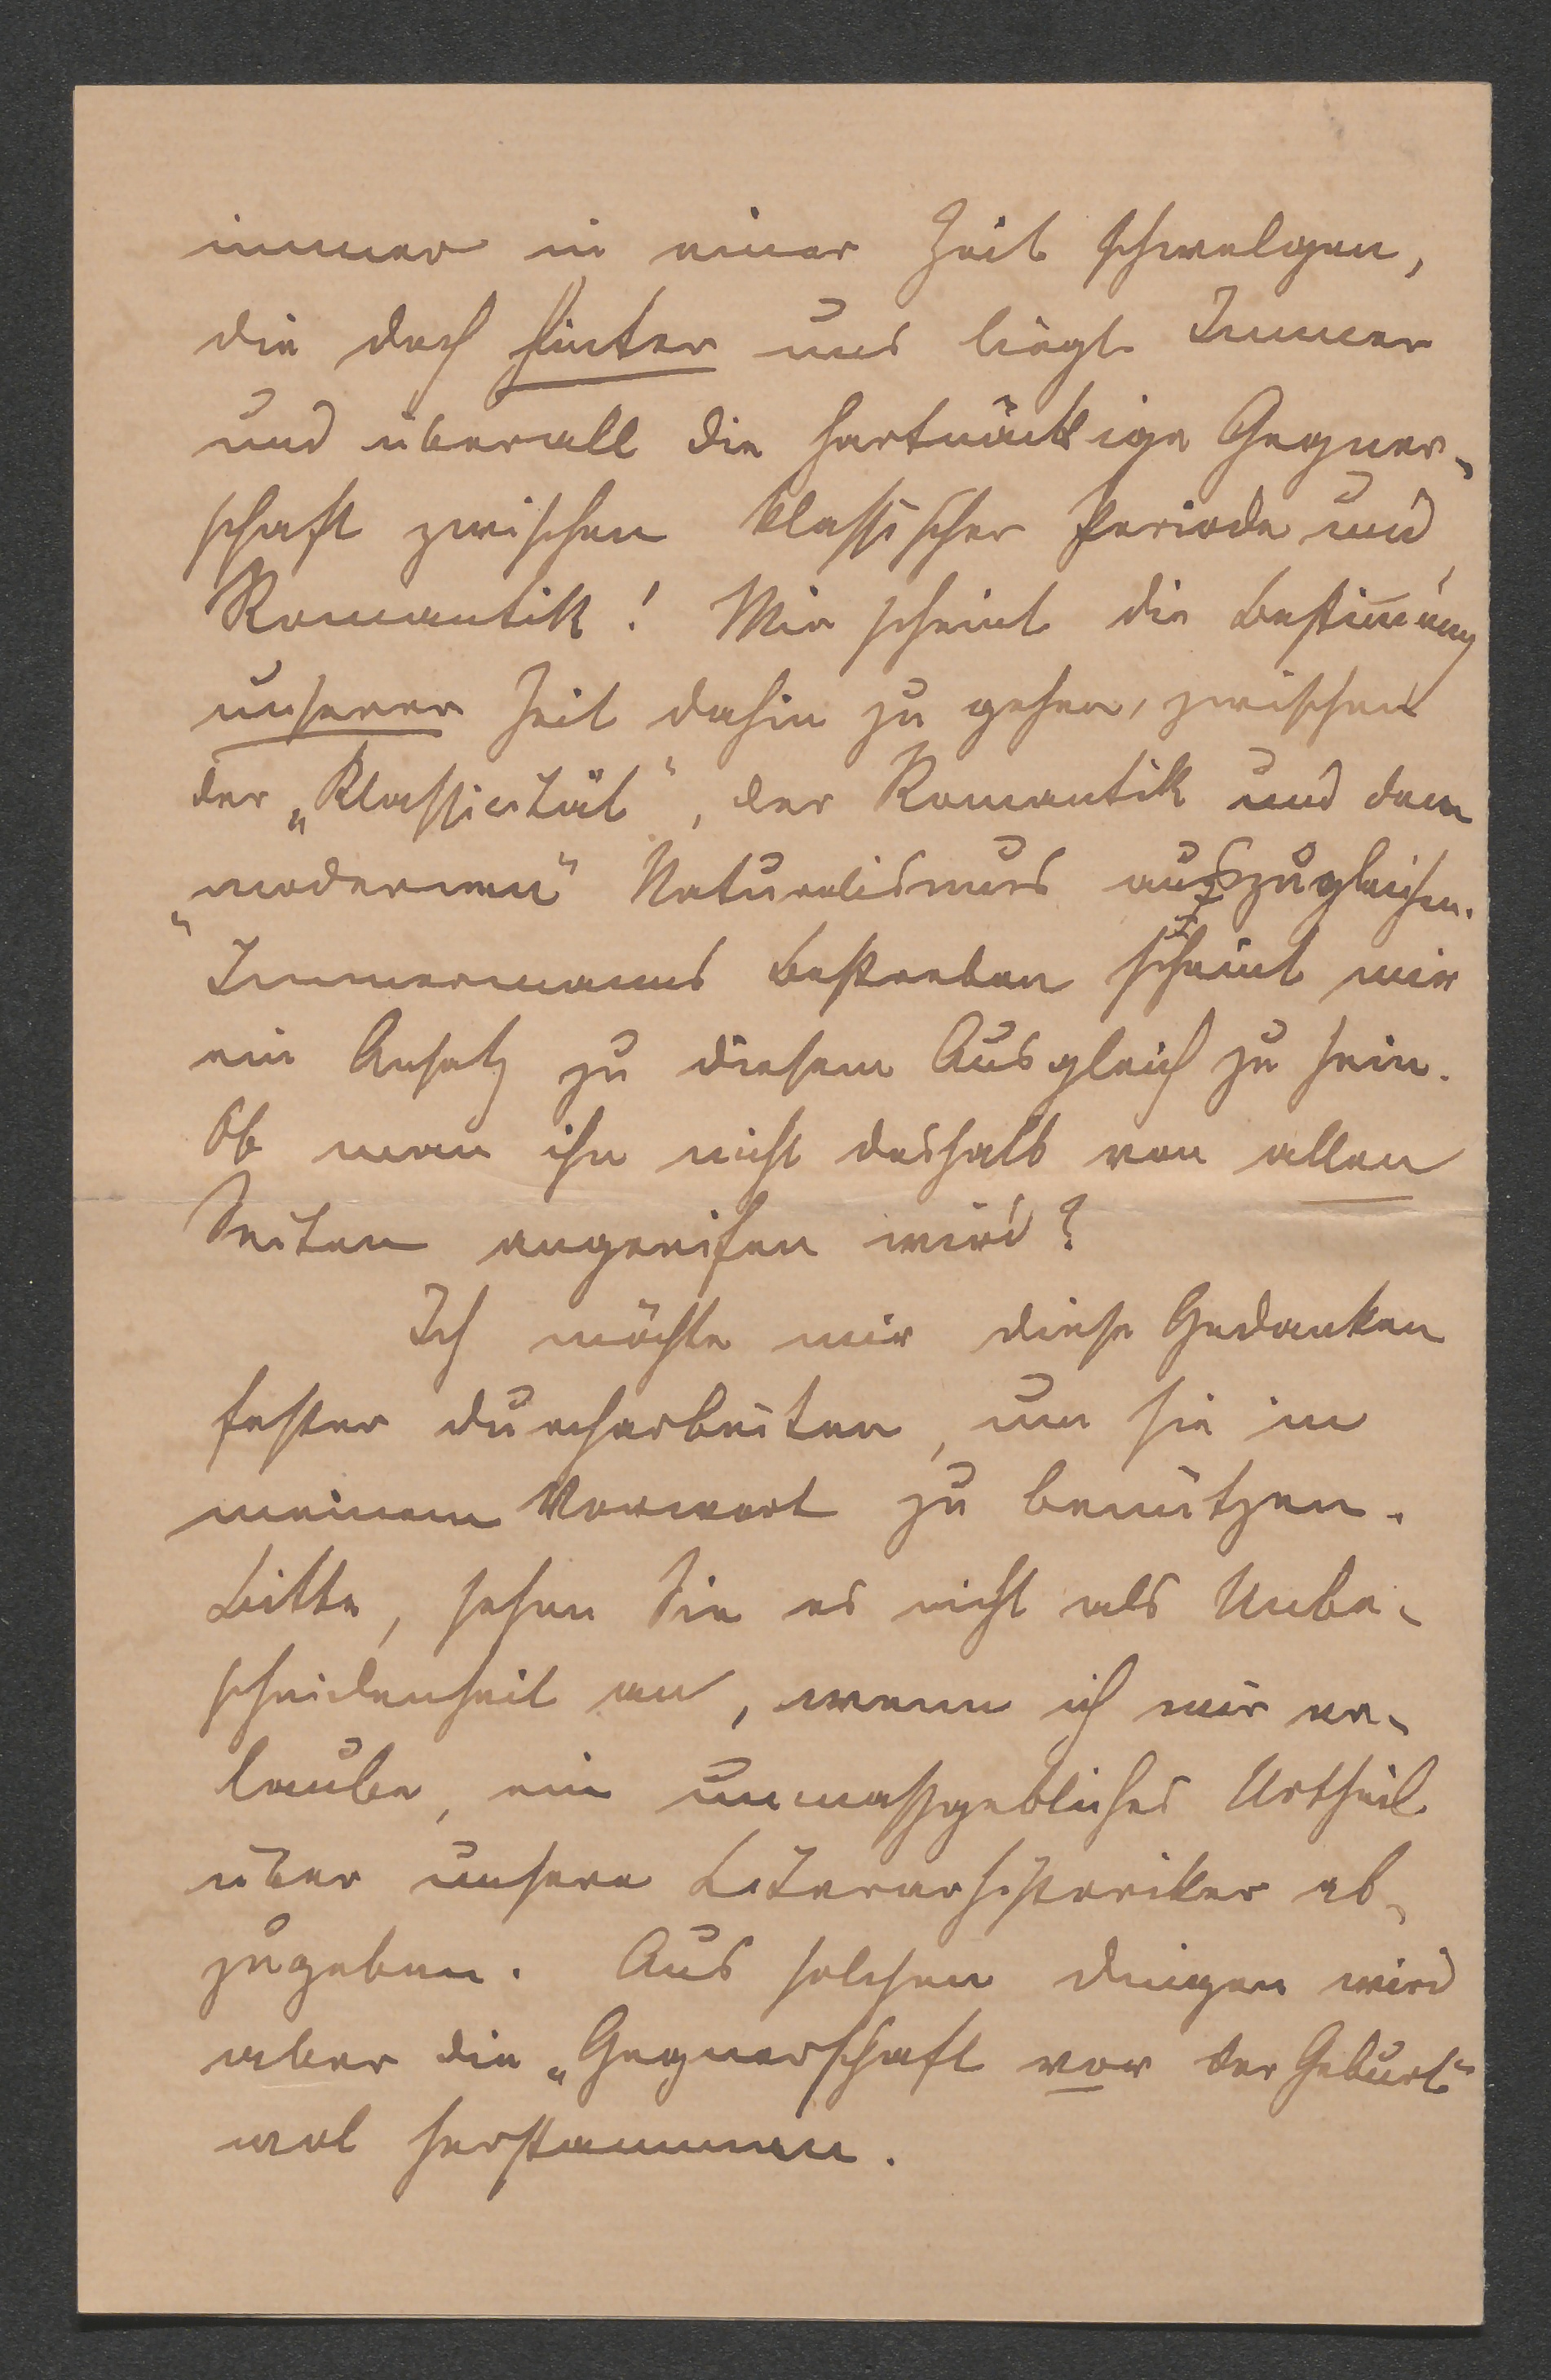 immer in einer Zeit schwelgen,
die doch hinter uns liegt Immer
und überall die hartnäckige Gegner-
schaft zwischen klassischer Periode und
Romantik! Mir scheint die Bestim̄ung
unserer Zeit dahin zu gehen, zwischen
der „Klassicität“, der Romantik und dem
„modernen“ Naturalismus auszugleichen.
Immermanns Bestreben scheint mir
ein Ansatz zu diesem Ausgleich zu sein.
Ob man ihn nicht deshalb von allen
Seiten angreifen wird?
Ich möchte mir diese Gedanken
fester durcharbeiten, um sie in
meinem Vorwort zu benützen.
Bitte, sehen Sie es nicht als Unbe-
scheidenheit an, wenn ich mir er-
laube, ein unmassgebliches Urtheil
über unsere Literarhistoriker ab-
zugeben. Aus solchen Dingen wird
aber die „Gegnerschaft vor der Geburt“
wol herstammen.